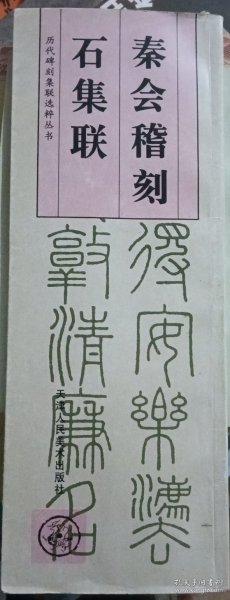 秦会稽刻
石集联
历代碑刻集联选粹丛书
得安樂灋
敦清廉名
天津人民美术出版社
孔夫子旧书网